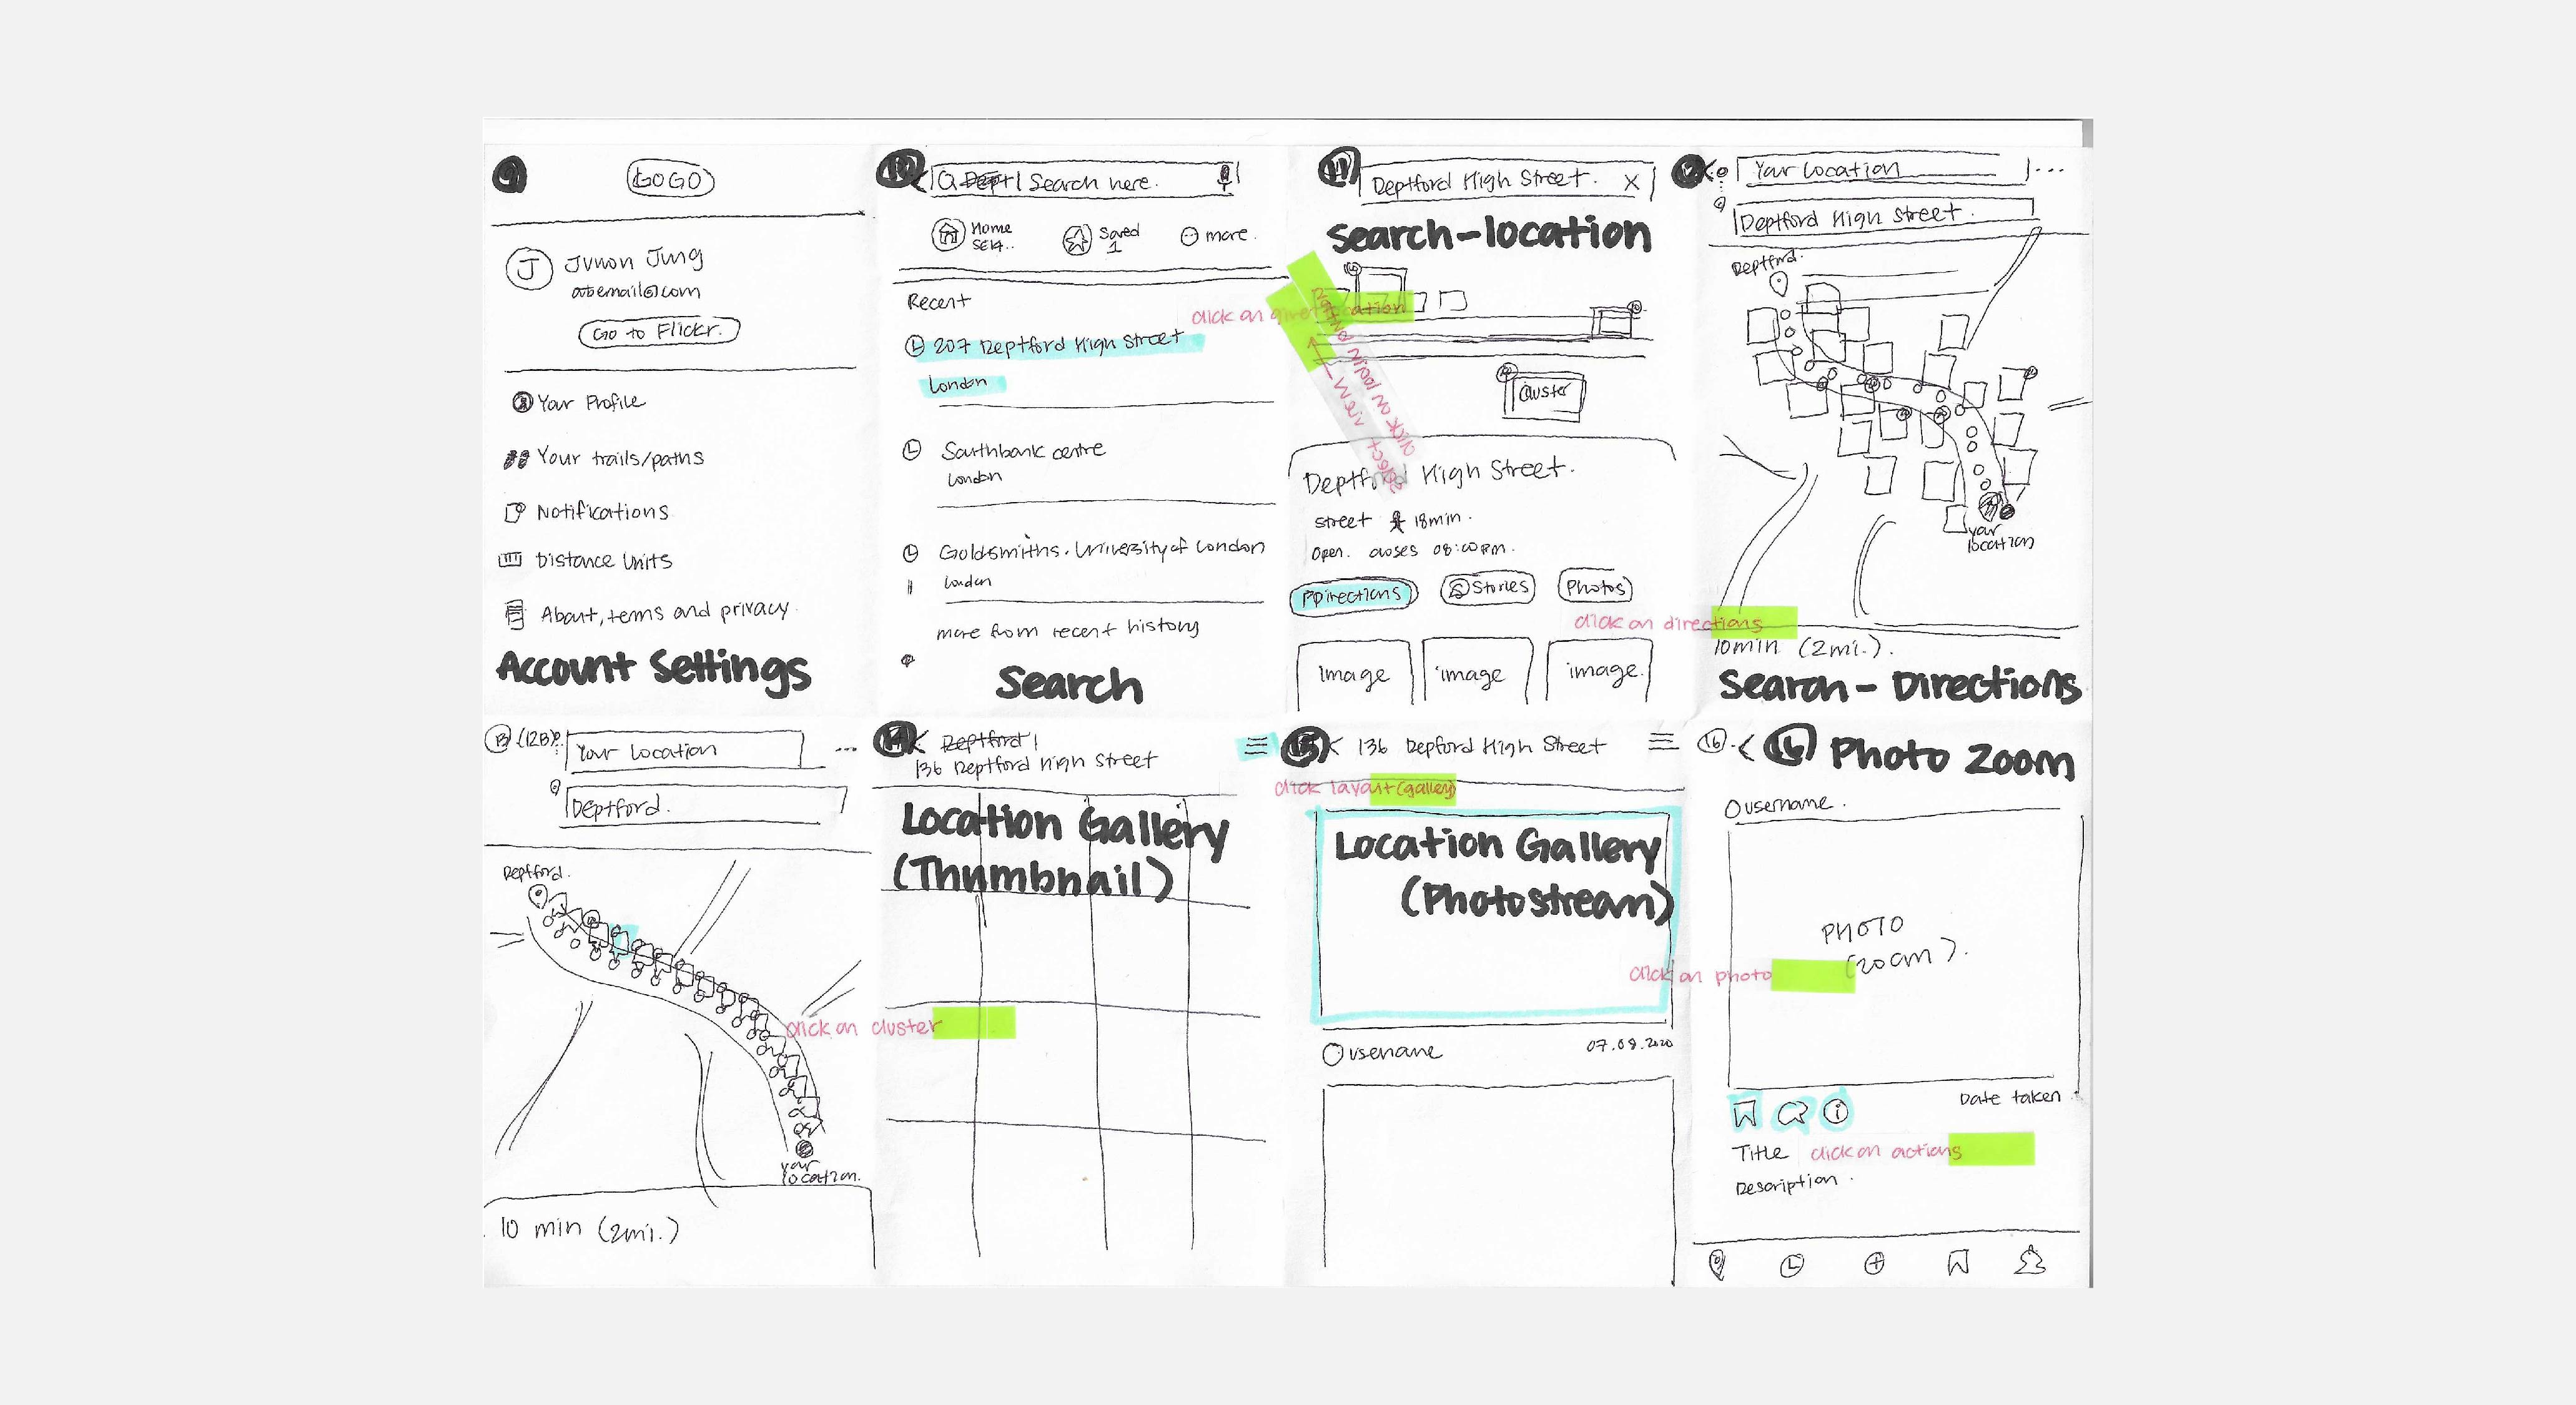 9
GOGO
J
Junon Jung
Go to Flickr.
Your Profile
Your trails/paths
Notifications
Distance Units
About, terms and privacy.
Account Settings
10
Search here.
Home
SE14..
Saved
1
more.
Recent
207 Deptford High Street
London
Southbank centre
London
Goldsmiths. University of London
London
more from recent history
Search
11
Deptford High Street. X
Search-location
click on
cation
select view
click on
Cluster
Deptford High Street.
street 18min.
Open. closes 08:00pm.
Directions
Stories
Photos
click on directions
image
image
image.
12
Your location
...
Deptford High Street.
Deptford.
your
location
10min (2mi.).
Search - Directions
13 (12B)
Your location
...
Deptford.
Deptford.
your
location.
10 min (2mi.)
14 < Deptford
136 Deptford High Street
Location Gallery
(Thumbnail)
click on cluster
15 < 136 Depford High Street
click layout (gallery)
Location Gallery
(Photostream)
click on photo
username
07.08.2020
16 < 16 Photo Zoom
username.
PHOTO
(zoom).
Date taken
Title
click on actions
Description.